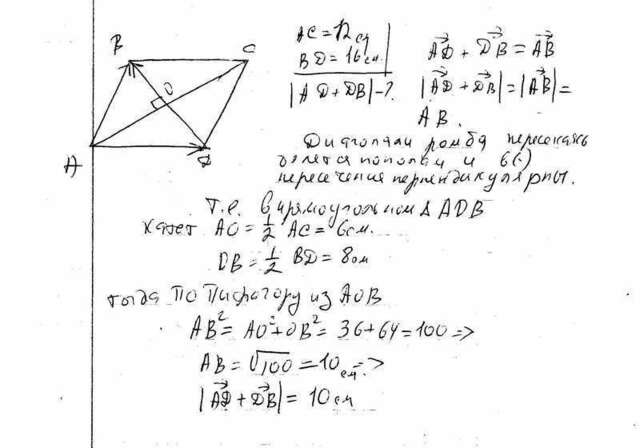 B C
O
A D
AC = 12 см
BD = 16 см
|AD + DB| - ?
AD + DB = AB
|AD + DB| = |AB| =
AB.
Диагонали ромба пересекаясь
делятся пополам и в (·)
пересечения перпендикулярны.
Т.е. в прямоугольном Δ ADB
катет AO = 1/2 AC = 6 см.
DB = 1/2 BD = 8 см
тогда по Пифагору из AOB
AB² = AO² + OB² = 36 + 64 = 100 =>
AB = √100 = 10 см =>
|AD + DB| = 10 см